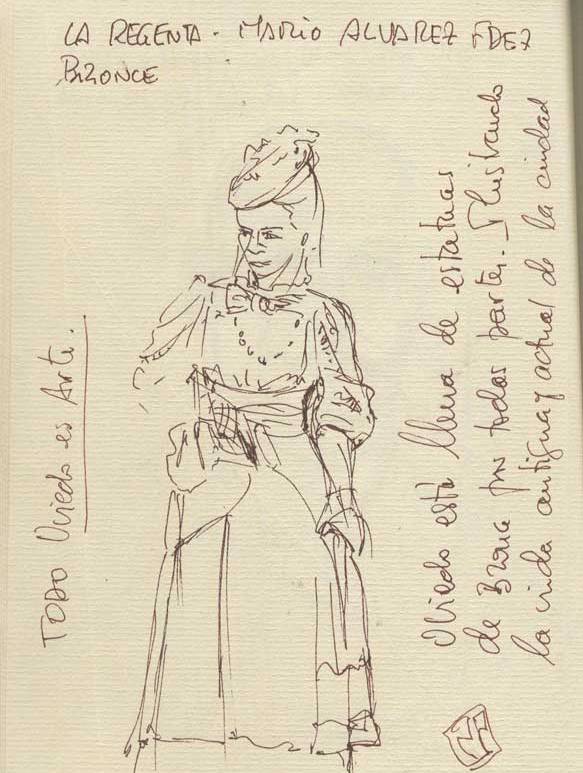 LA REGENTA - MARIO ALVAREZ FDEZ
BRONCE
TODO Oviedo es Arte.
Oviedo está llena de estatuas
de Bronce por todas partes. Ilustrando
la vida antigua y actual de la ciudad